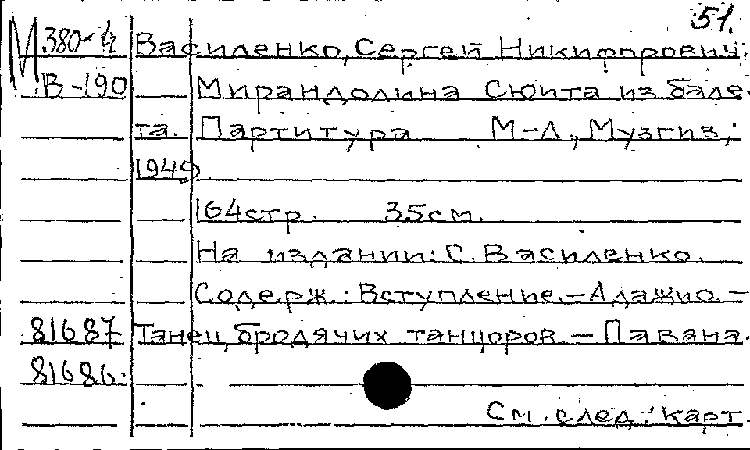 51.
М 380-½ Василенко, Сергей Никифорович.
В-190 Мирандолина Сюита из бале-
та. Партитура М-Л, Музгиз,
1949
164стр. 35см.
На издании: С. Василенко.
Содерж.: Вступление.-Адажио.-
81687 Танец бродячих танцоров.- Павана.
81686.
См. след. карт.